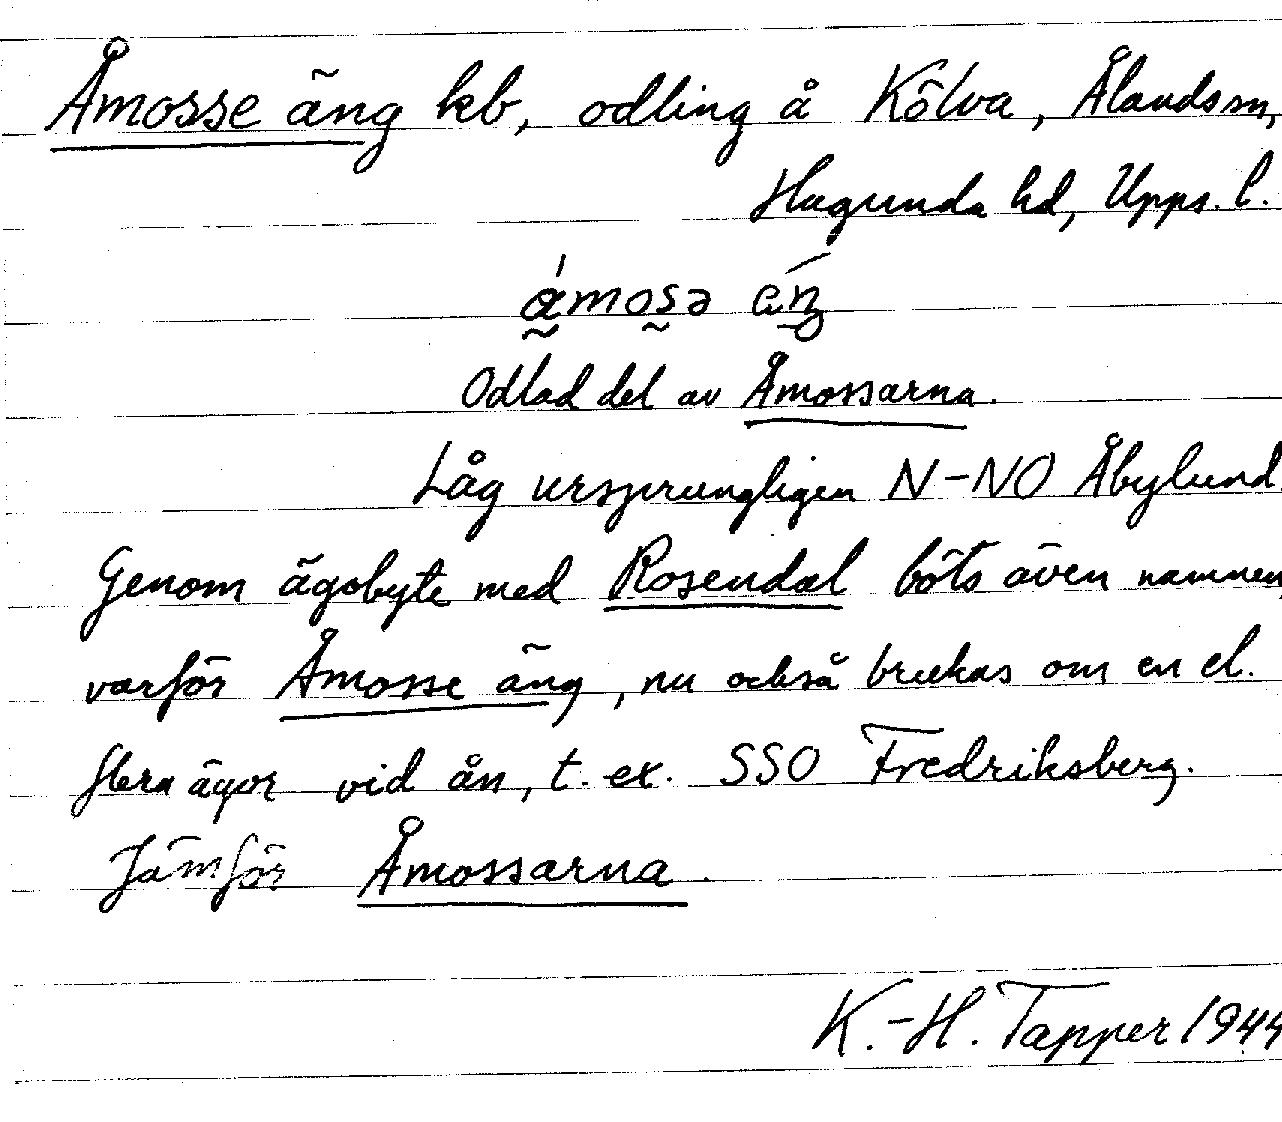 Åmosse äng kb, odling å Kölva, Ålands sn,
Hagunda hd, Upps. l.
Odlad del av Åmossarna.
Låg ursprungligen N-NO Åbylund.
Genom ägobyte med Rosendal böts även namnen,
varför Åmosse äng, nu också brukas om en el.
flera ägor vid ån, t. ex. SSO Fredriksberg.
Jämför Åmossarna.
K.-H. Tapper 1944